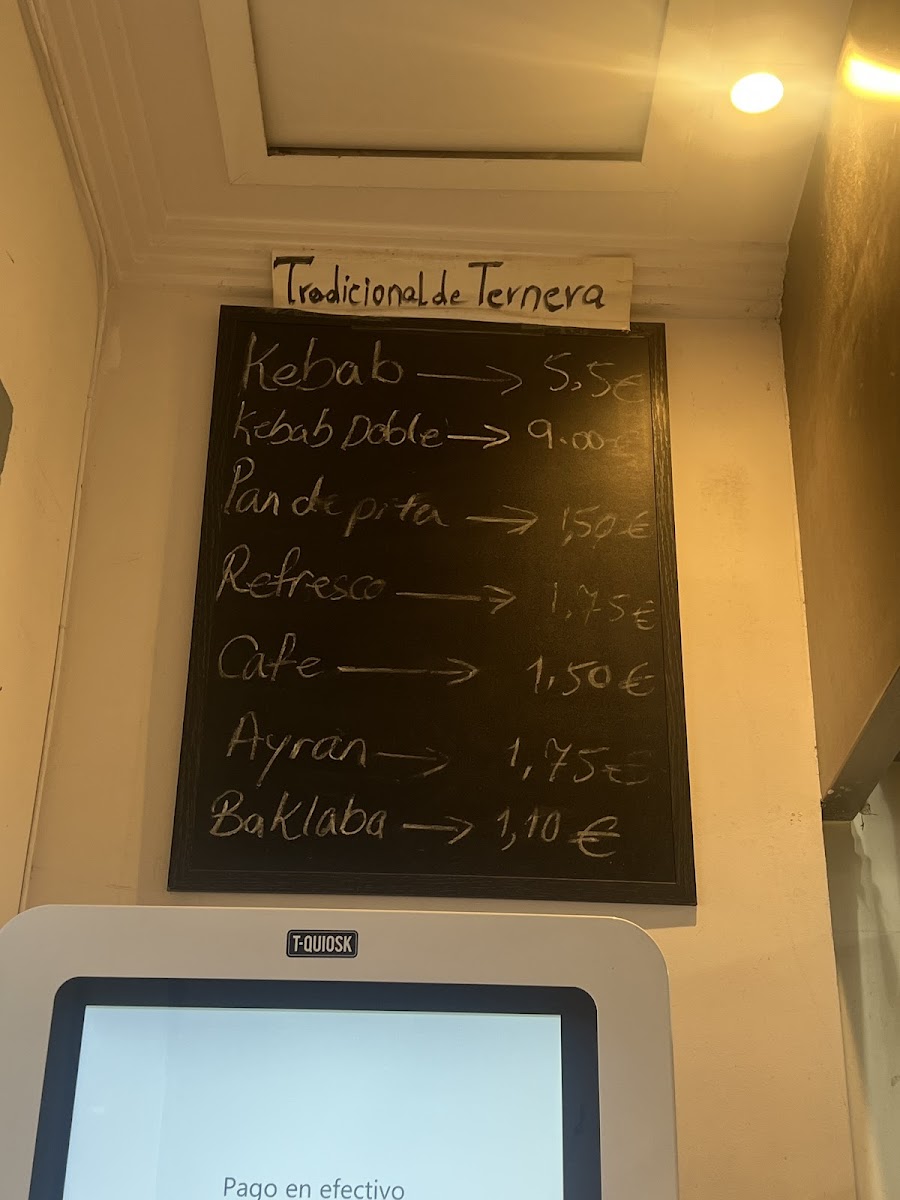 Tradicional de Ternera
Kebab → 5,5€
Kebab Doble → 9.00€
Pan de pita → 1,50€
Refresco → 1,75€
Cafe → 1,50€
Ayran → 1,75€
BaKlaba → 1,10€
T-QUIOSK
Pago en efectivo